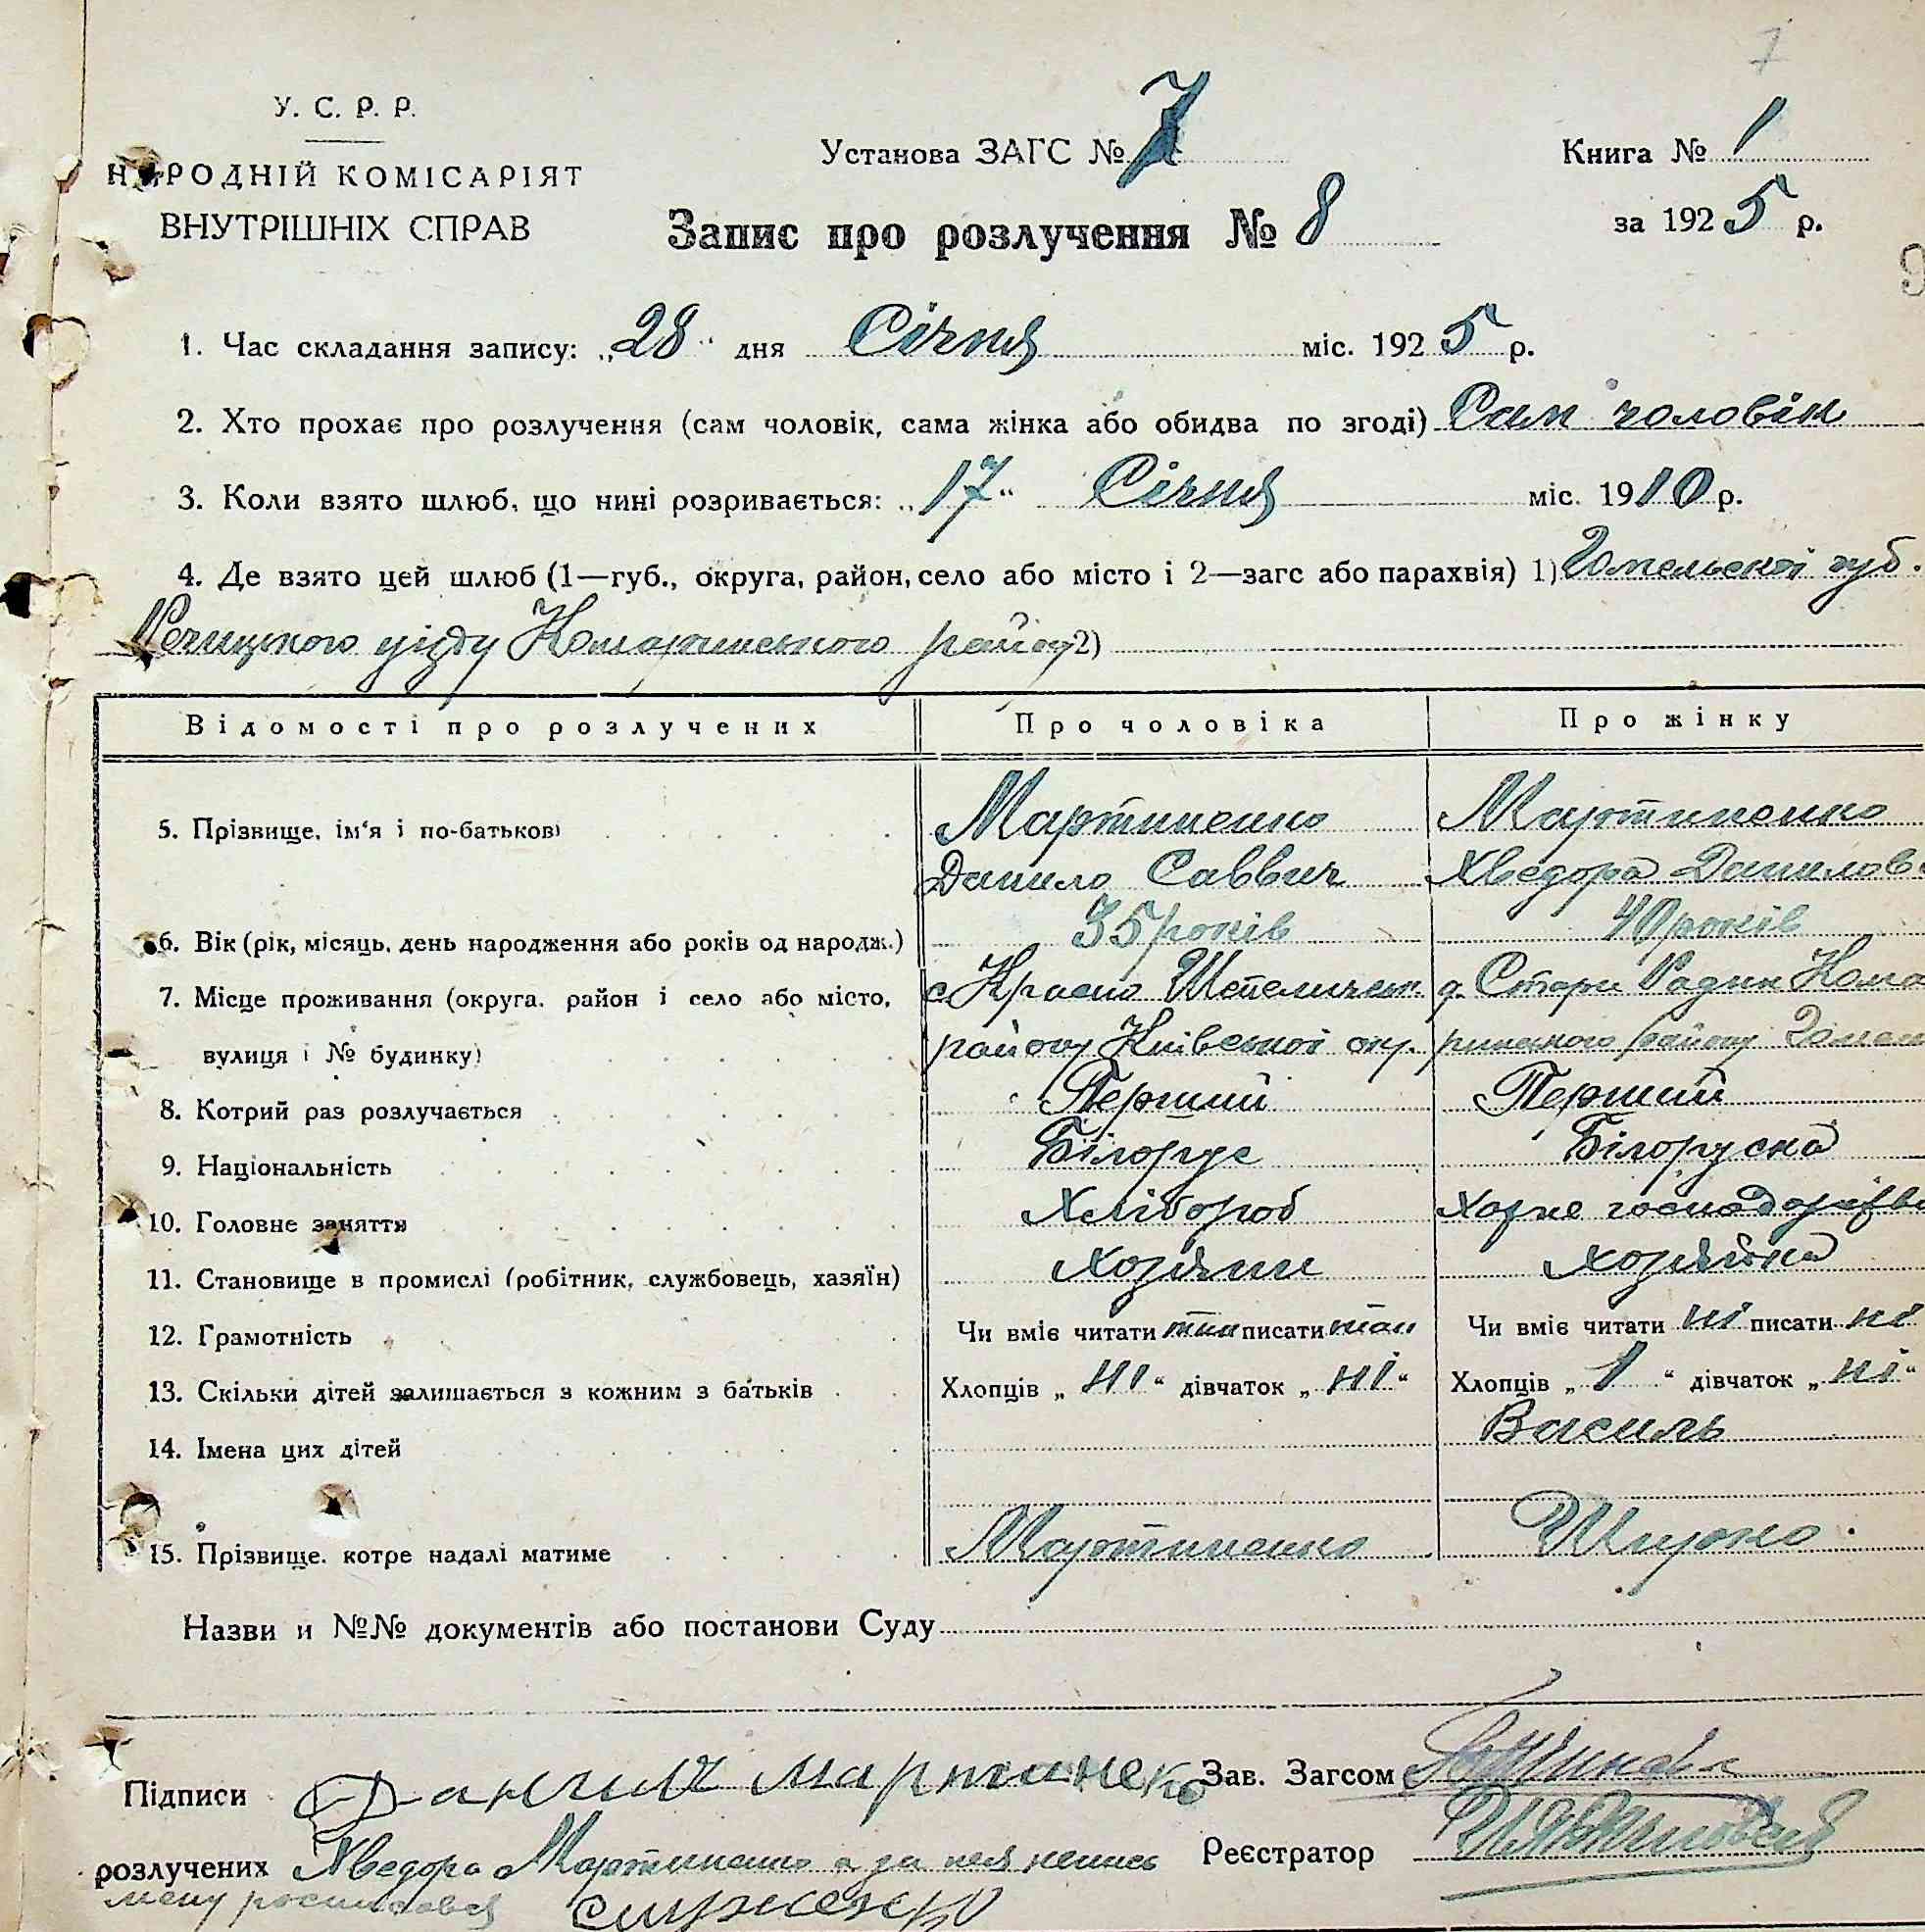 7
У. С. Р. Р.
НАРОДНІЙ КОМІСАРІЯТ
ВНУТРІШНІХ СПРАВ
Установа ЗАГС № 7
Книга № 1
за 1925 р.
Запис про розлучення № 8
9
1. Час складання запису: „28“ дня Січня міс. 1925 р.
2. Хто прохає про розлучення (сам чоловік, сама жінка або обидва по згоді) Сам чоловік
3. Коли взято шлюб, що нині розривається: „17“ Січня міс. 1910 р.
4. Де взято цей шлюб (1—губ., округа, район, село або місто і 2—загс або парахвія) 1) Гомельскої губ.
Речицкого уізду Комаринського району 2)
Відомості про розлучених Про чоловіка Про жінку
5. Прізвище, ім'я і по-батькові Мартиненко Мартиненко
Данило Саввич Хведора Данилов
6. Вік (рік, місяць, день народження або років од народж.) 35 років 40 років
7. Місце проживання (округа, район і село або місто, с. Красно Шепелическ. д. Стари Радин Кома
вулиця і № будинку) району Київської окр. ринского району Гомел
8. Котрий раз розлучається Перший Перший
9. Національність Білорус Білоруска
10. Головне заняття Хлібороб Хатне господарство
11. Становище в промислі (робітник, службовець, хазяїн) Хозяин Хозяйка
12. Грамотність Чи вміє читати так писати так Чи вміє читати ні писати ні
13. Скільки дітей залишається з кожним з батьків Хлопців „ні“ дівчаток „ні“ Хлопців „1“ дівчаток „ні“
14. Імена цих дітей Василь
15. Прізвище, котре надалі матиме Мартиненко Шкурко
Назви и №№ документів або постанови Суду
Підписи Данило Мартинеко Зав. Загсом
розлучених Хведора Мартиненко а за нея непись Реєстратор
мену росписався